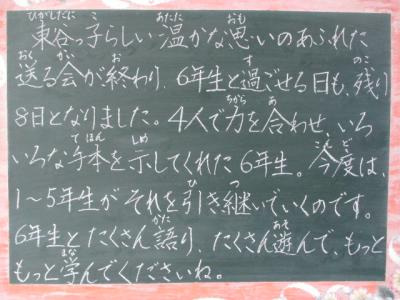 東谷っ子らしい温かな思いのあふれた
送る会が終わり、6年生と過ごせる日も、残り
8日となりました。4人で力を合わせ、いろ
いろな手本を示してくれた6年生。今度は、
1～5年生がそれを引き継いでいくのです。
6年生とたくさん語り、たくさん遊んで、もっと
もっと学んでくださいね。